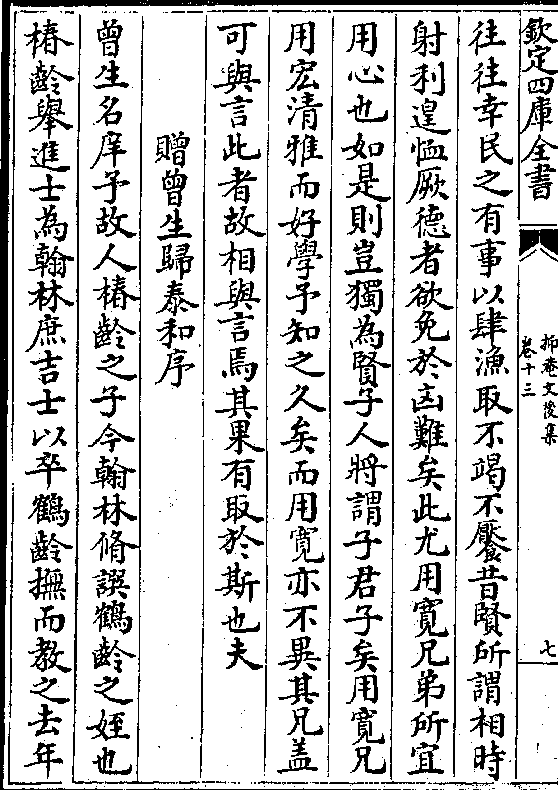 欽定四庫全書
抑菴文後集
卷十三
七
往往幸民之有事以肆漁取不竭不饜昔賢所謂相時
射利遑恤厥德者欲免於凶難矣此尤用寛兄弟所宜
用心也如是則豈獨為賢子人將謂子君子矣用寛兄
用宏清雅而好學予知之久矣而用寛亦不異其兄盖
可與言此者故相與言焉其果有取於斯也夫
贈曾生歸泰和序
曾生名庠予故人椿齡之子今翰林脩譔鶴齡之姪也
椿齡舉進士為翰林庶吉士以卒鶴齡撫而教之去年